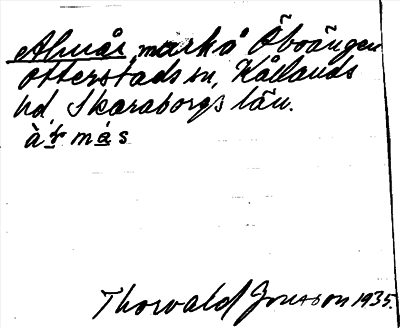 Alnås, mark å Öboängen
Otterstads sn, Kållands
hd, Skaraborgs län.
Thorvald Jonsson 1935.